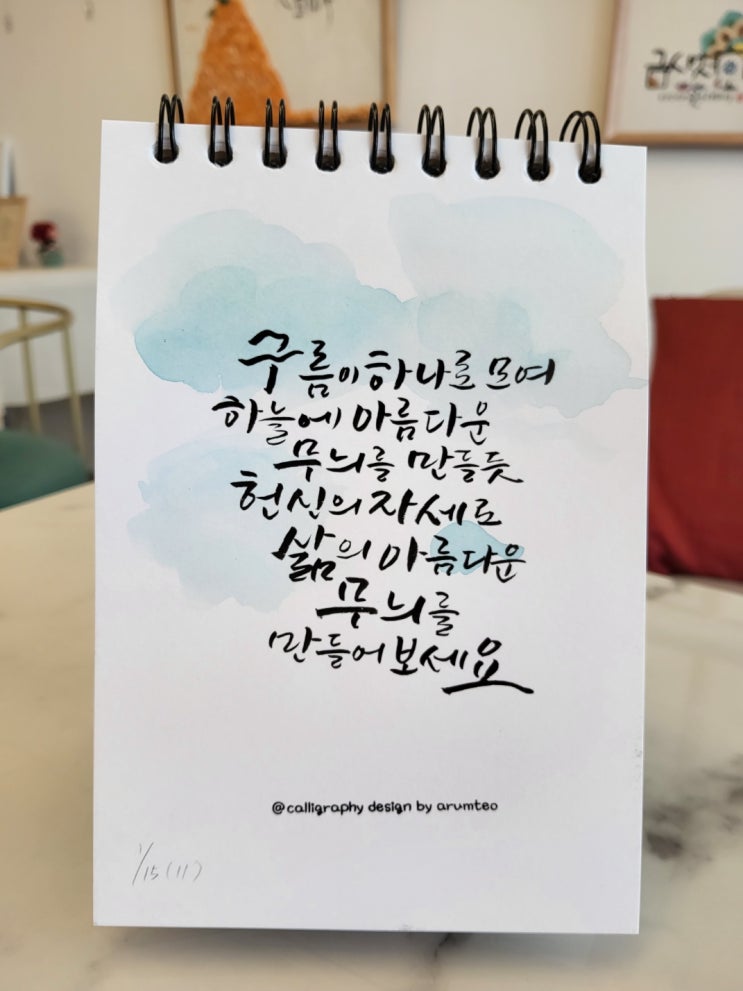 구름이 하나로 모여
하늘에 아름다운
무늬를 만들듯
헌신의 자세로
삶의 아름다운
무늬를
만들어보세요
@calligraphy design by arumteo
1/15 (11)